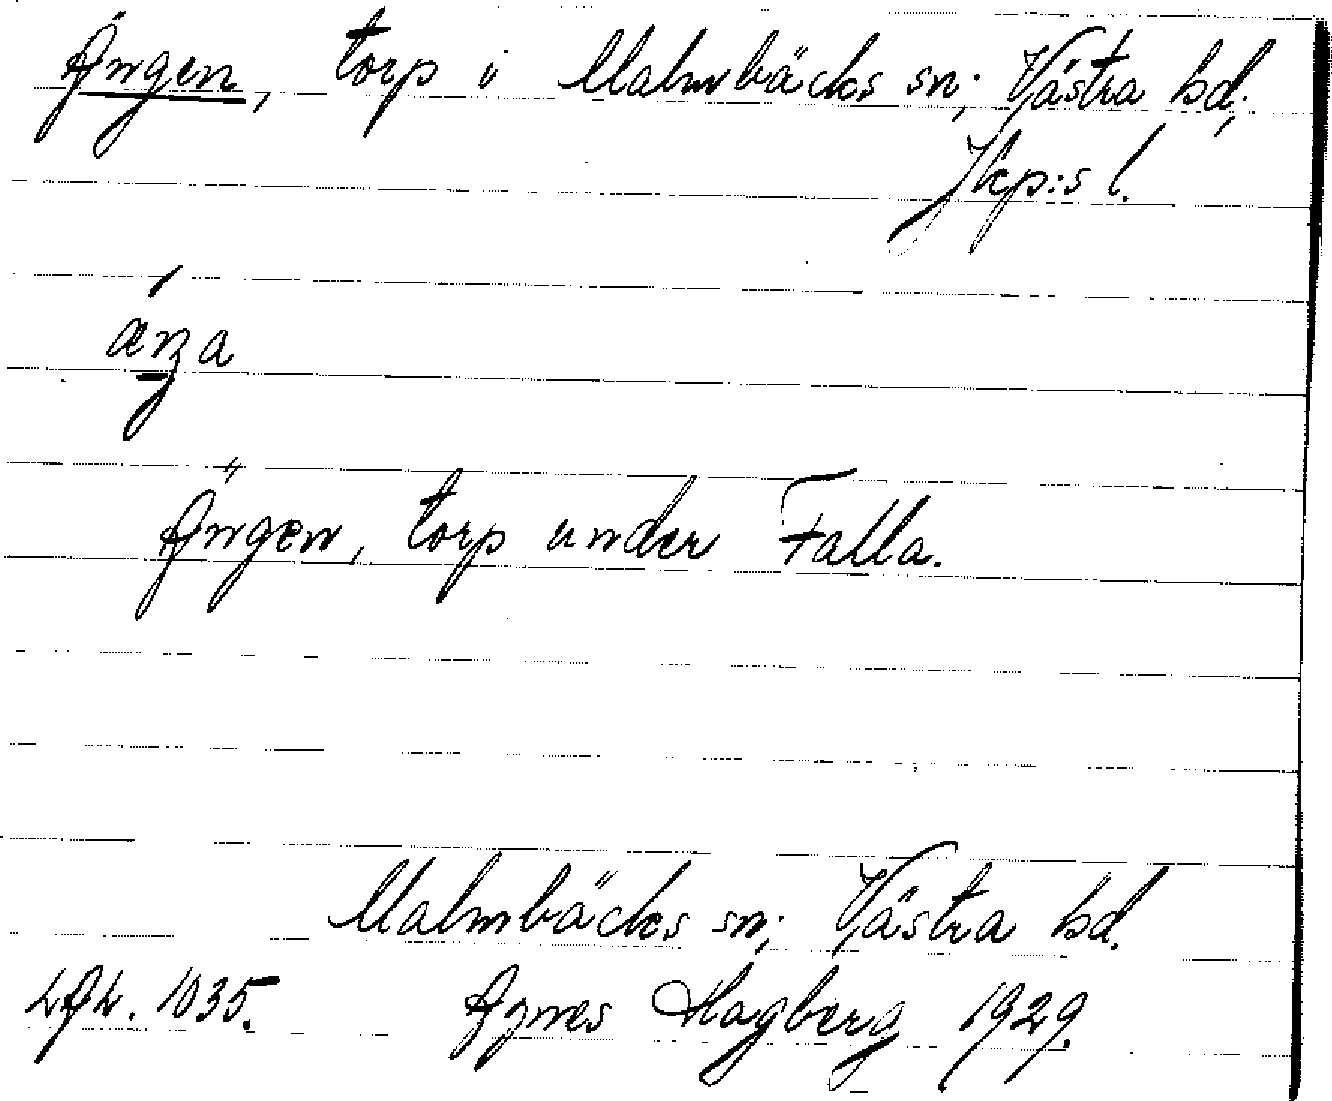 Ängen, torp i Malmbäcks sn; Västra hd;
Jkp:s l.
Ängen, torp under Falla.
Malmbäcks sn; Västra hd.
LAL. 1035. Agnes Hagberg 1929.